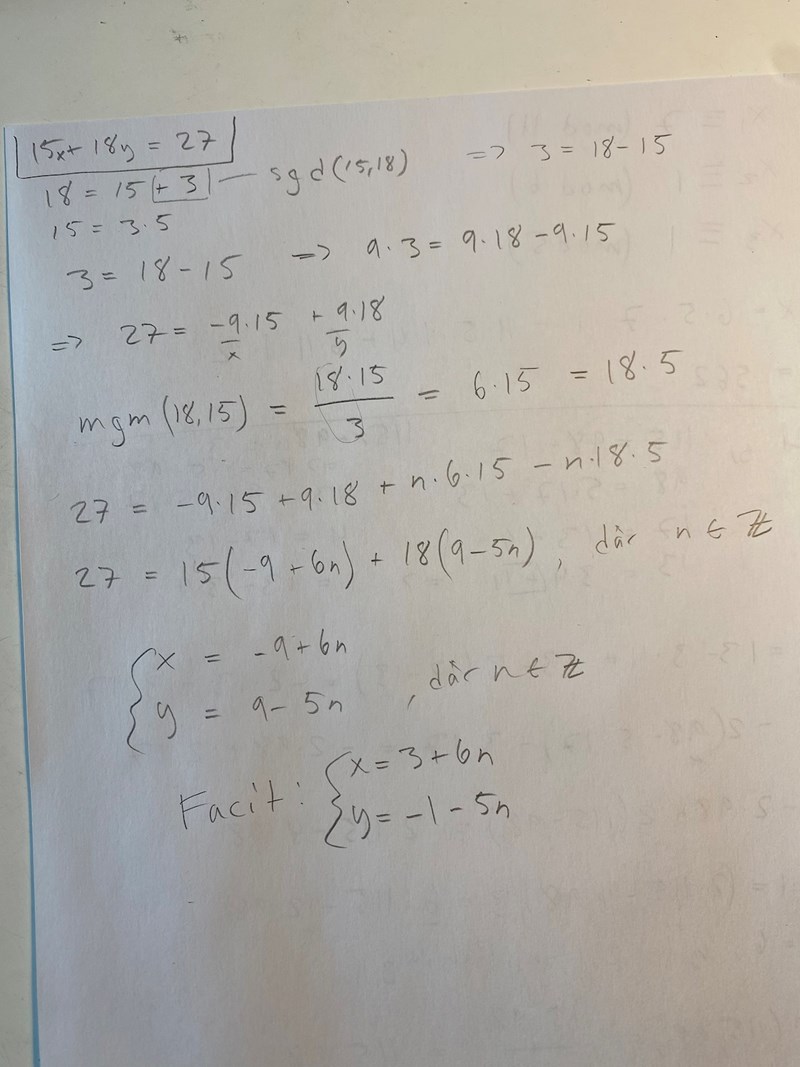 15x + 18y = 27
18 = 15 + 3 — sgd(15,18) => 3 = 18 - 15
15 = 3·5
3 = 18 - 15 => 9·3 = 9·18 - 9·15
=> 27 = -9·15 + 9·18
x y
mgm(18,15) = 18·15/3 = 6·15 = 18·5
27 = -9·15 + 9·18 + n·6·15 - n·18·5
27 = 15(-9 + 6n) + 18(9 - 5n), där n ∈ ℤ
{ x = -9 + 6n
{ y = 9 - 5n , där n ∈ ℤ
Facit: { x = 3 + 6n
{ y = -1 - 5n